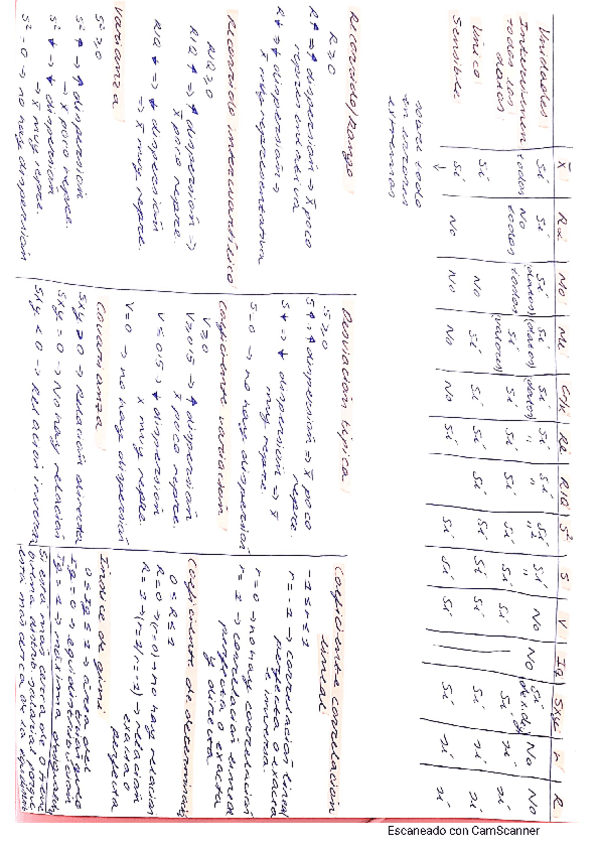 x̄ Ra Mo Me C4/4 Re RIQ S² S V Ig Sxy r R
Unidades: Sí Sí Sí (datos) Sí (datos) Sí (datos) Sí " Sí " Sí ² Sí " No No Sí (de x d y) No No
Intervienen todos los datos: todos No todos todos Sí (valores) Sí Sí Sí Sí Sí Sí Sí sí sí
Único: Sí No Sí Sí Sí Sí Sí Sí Sí Sí sí sí
Sensible: Sí No No No No Sí Sí Sí Sí Sí sí sí
↓
sobre todo
en valores
extremos
Recorrido/Rango
R ≥ 0
R↑ → ↑ dispersión → x̄ poco
representativa
R↓ → ↓ dispersión →
x̄ muy representativa
Recorrido intercuartílico
RIQ ≥ 0
RIQ ↑ → ↑ dispersión →
x̄ poco repre.
RIQ ↓ → ↓ dispersión
→ x̄ muy repre.
Varianza
S² ≥ 0
S² ↑ → ↑ dispersión
→ x̄ poco repre.
S² ↓ → ↓ dispersión
→ x̄ muy repre.
S² = 0 → no hay dispersión
Desviación típica
S ≥ 0
S↑ → ↑ dispersión → x̄ poco
repre.
S↓ → ↓ dispersión → x̄
muy repre.
S = 0 → no hay dispersión
Coeficiente variación
V ≥ 0
V > 0,5 → ↑ dispersión
x̄ poco repre.
V ≤ 0,5 → ↓ dispersión
x̄ muy repre.
V = 0 → no hay dispersión
Covarianza
Sxy > 0 → Relación directa
Sxy = 0 → No hay relación
Sxy < 0 → Relación inversa
Coeficiente correlación
lineal
-1 ≤ r ≤ 1
r = -1 → correlación lineal
perfecta o exacta
e inversa
r = 0 → no hay correlación
r = 1 → correlación lineal
perfecta o exacta
y directa
Coeficiente de
0 ≤ R ≤ 1
R = 0 → (r = 0) → no hay relación
R = 1 → (r = 1/r = -1) → relación
exacta o
perfecta
Índice de gini
0 ≤ Ig ≤ 1
Ig = 0 → equidistribución
Ig = 1 → máxima
Si está más cerca de 0 tiene
buena salarial porque
está más cerca de la
Escaneado con CamScanner